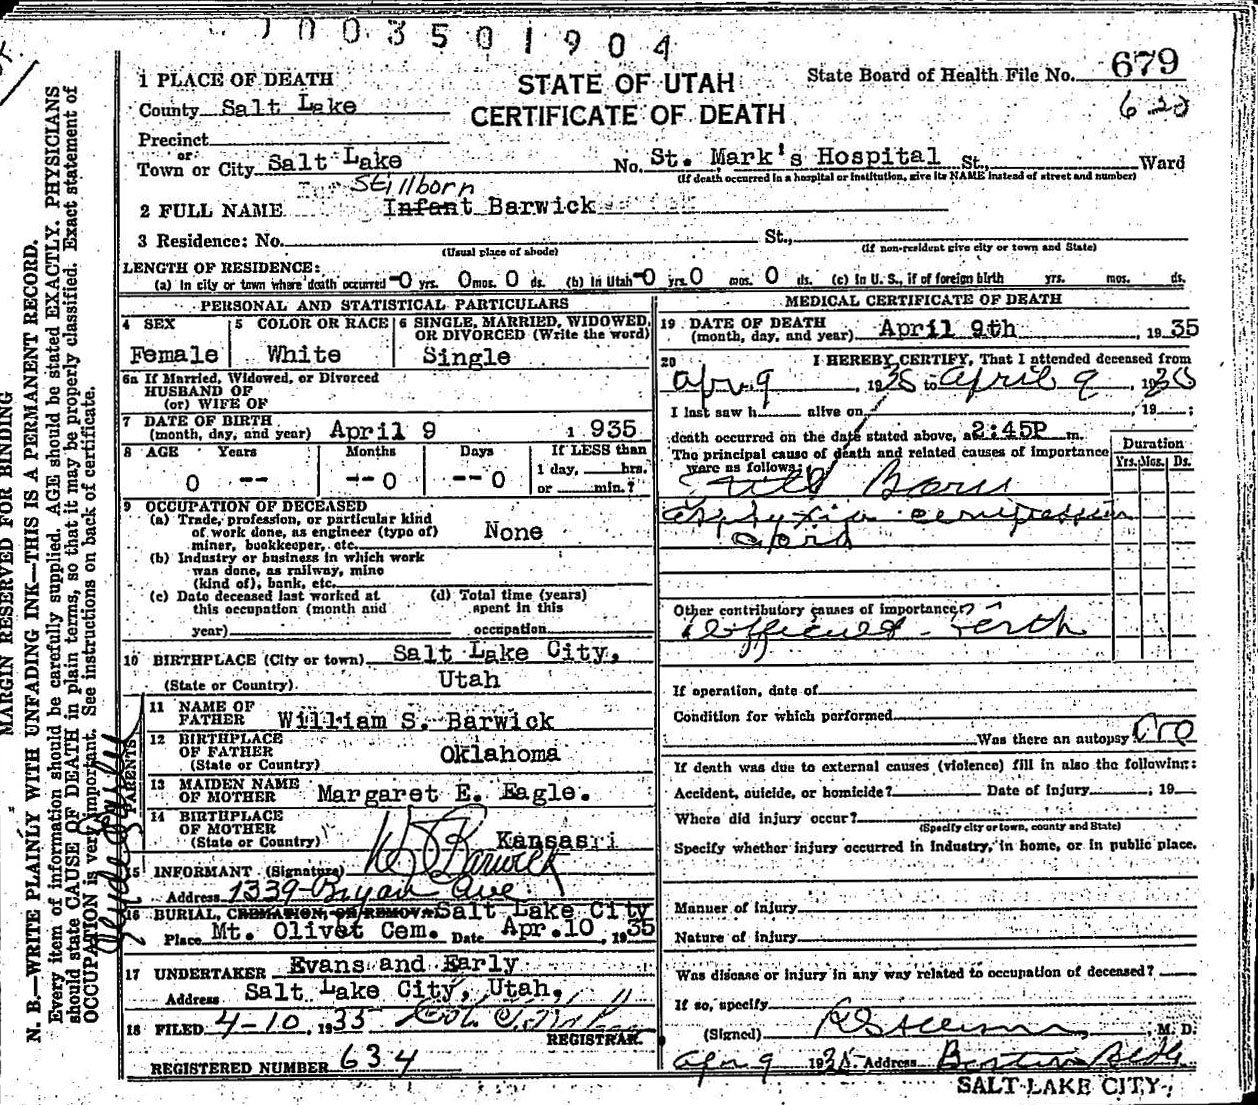 1003501904
STATE OF UTAH
CERTIFICATE OF DEATH
State Board of Health File No. 679
1 PLACE OF DEATH
County Salt Lake
Precinct
or
Town or City Salt Lake No. St. Mark's Hospital St., Ward
(If death occurred in a hospital or institution, give its NAME instead of street and number)
Stillborn
2 FULL NAME Infant Barwick
3 Residence: No. St.,
(Usual place of abode) (If non-resident give city or town and State)
LENGTH OF RESIDENCE:
(a) In city or town where death occurred 0 yrs. 0 mos. 0 ds. (b) In Utah 0 yrs. 0 mos. 0 ds. (c) In U. S., if of foreign birth yrs. mos. ds.
PERSONAL AND STATISTICAL PARTICULARS
4 SEX
Female
5 COLOR OR RACE
White
6 SINGLE, MARRIED, WIDOWED,
OR DIVORCED (Write the word)
Single
6a If Married, Widowed, or Divorced
HUSBAND OF
(or) WIFE OF
7 DATE OF BIRTH
(month, day, and year) April 9 1935
8 AGE Years Months Days If LESS than
1 day, hrs.
or min.?
0 -- --0 --0
9 OCCUPATION OF DECEASED
(a) Trade, profession, or particular kind
of work done, as engineer (type of)
miner, bookkeeper, etc. None
(b) Industry or business in which work
was done, as railway, mine
(kind of), bank, etc.
(c) Date deceased last worked at
this occupation (month and
year)
(d) Total time (years)
spent in this
occupation
10 BIRTHPLACE (City or town) Salt Lake City,
(State or Country). Utah
PARENTS
11 NAME OF
FATHER William S. Barwick
12 BIRTHPLACE
OF FATHER
(State or Country) Oklahoma
13 MAIDEN NAME
OF MOTHER Margaret E. Eagle.
14 BIRTHPLACE
OF MOTHER
(State or Country) Kansas
15 INFORMANT (Signature) W S Barwick
Address 1339 Bryan Ave
16 BURIAL, CREMATION, OR REMOVAL Salt Lake City
Place Mt. Olivet Cem. Date Apr. 10, 1935
17 UNDERTAKER Evans and Early
Address Salt Lake City, Utah,
18 FILED 4-10, 1935
REGISTRAR.
REGISTERED NUMBER 634
MEDICAL CERTIFICATE OF DEATH
19 DATE OF DEATH
(month, day, and year) April 9th 1935
20 I HEREBY CERTIFY, That I attended deceased from
Apr 9, 1935 to April 9, 1935
I last saw h alive on , 19 ;
death occurred on the date stated above, at 2:45P m.
The principal cause of death and related causes of importance
were as follows:
Duration
Yrs. Mos. Ds.
Still Born
asphyxia compression
cord
Other contributory causes of importance:
Difficult birth
If operation, date of
Condition for which performed
Was there an autopsy no
If death was due to external causes (violence) fill in also the following:
Accident, suicide, or homicide? Date of injury , 19
Where did injury occur?
(Specify city or town, county and State)
Specify whether injury occurred in industry, in home, or in public place.
Manner of injury
Nature of injury
Was disease or injury in any way related to occupation of deceased?
If so, specify
(Signed) , M. D.
Apr 9 1935 Address Boston Bldg
SALT LAKE CITY
MARGIN RESERVED FOR BINDING
N. B.—WRITE PLAINLY WITH UNFADING INK—THIS IS A PERMANENT RECORD.
Every item of information should be carefully supplied. AGE should be stated EXACTLY. PHYSICIANS
should state CAUSE OF DEATH in plain terms, so that it may be properly classified. Exact statement of
OCCUPATION is very important. See instructions on back of certificate.